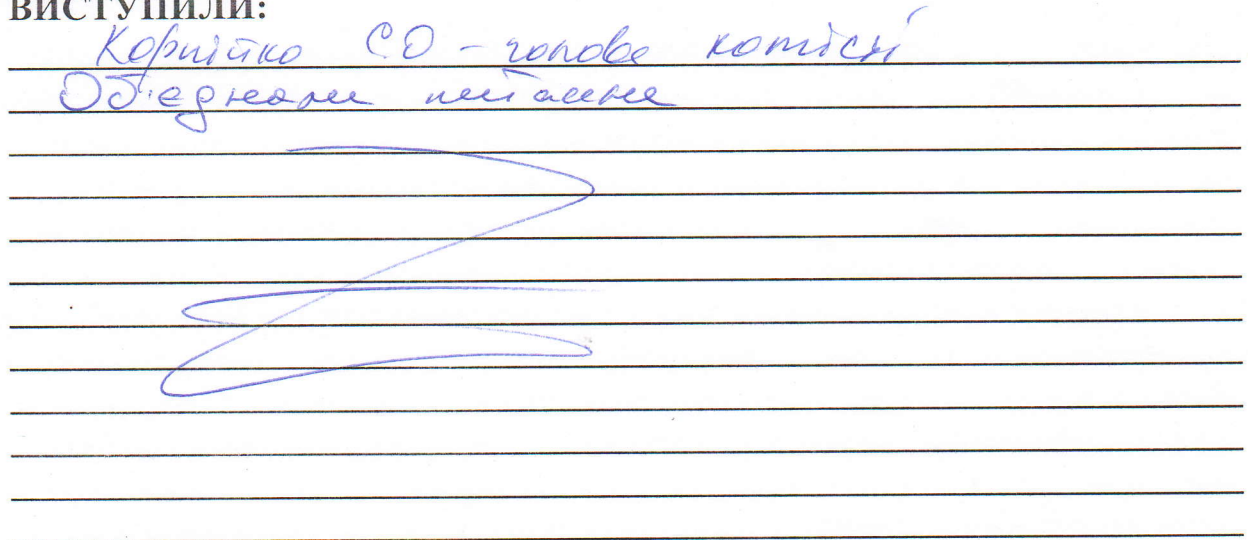 ВИСТУПИЛИ:
Корнійко С.О - голова комісії
Об'єднани питання